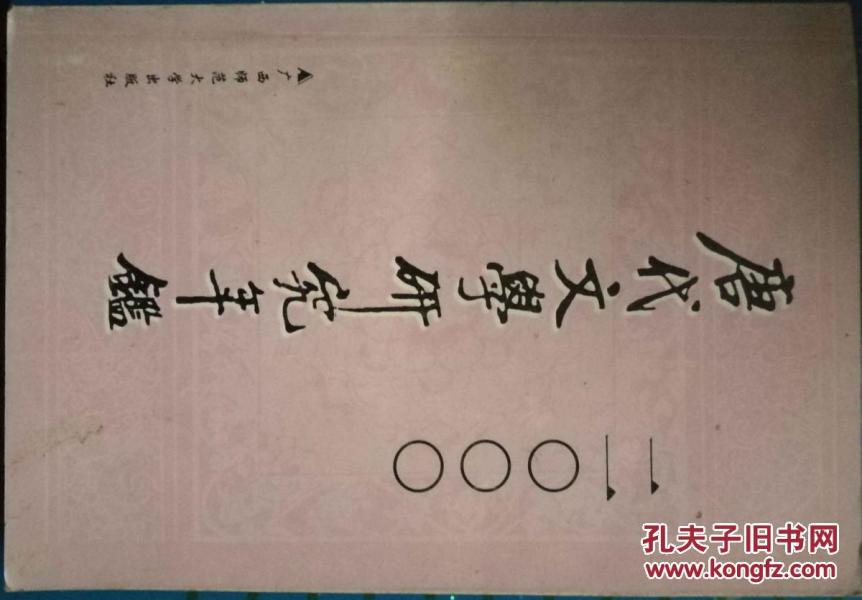 唐代文學研究年鑑
二〇〇〇
广西师范大学出版社
孔夫子旧书网
www.kongfz.com